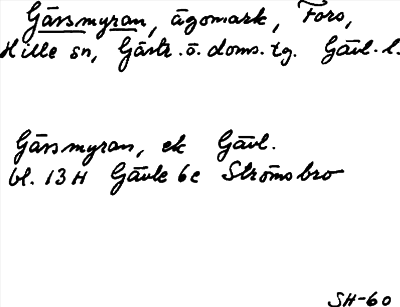 Gärsmyran, ägomark, Fors,
Hille sn, Gästr. ö. doms. tg. Gävl. l.
Gärsmyran, ek Gävl.
bl. 13 H Gävle 6c Strömsbro
SH-60